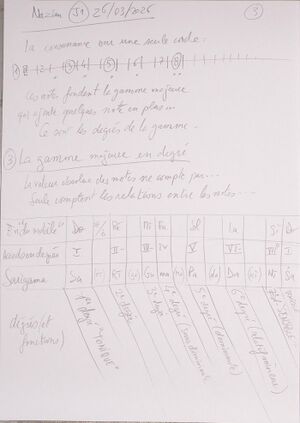 Nazim J1 25/03/2025 3
la consonance sur une seule corde:
1 2 3 4 5 6 7 8
Ces notes fondent la gamme majeure
qui ajoute quelques notes en plus...
Ce sont les degrés de la gamme.
3 La gamme majeure en degré
La valeur absolue des notes ne compte pas...
Seule comptent les relations entre les notes...
Do Ré Mi Fa Sol La Si Do
Accords en degrés I II- III- IV V VI- VII I
Sarigama Sa (ri) Ri (ga) Ga ma (ma) Pa (da) Da (ni) Ni Sa
degrés et fonctions)
1er degré "TONIQUE"
2e degré
3e degré
4e degré (sous dominante)
5e degré (dominante)
6e degré